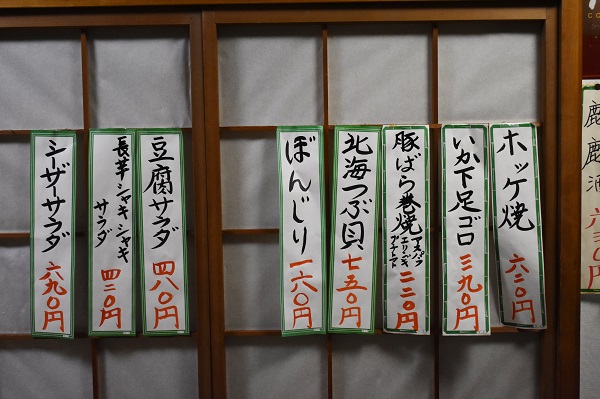 鹿鹿酒
六三〇円
ホッケ焼
六二〇円
いか下足ゴロ
三九〇円
豚ばら巻焼
アスパラ
エリンギ
プチトマト
二二〇円
北海つぶ貝
七五〇円
ぼんじり
一六〇円
豆腐サラダ
四八〇円
長芋シャキシャキ
サラダ
四二〇円
シーザーサラダ
六九〇円